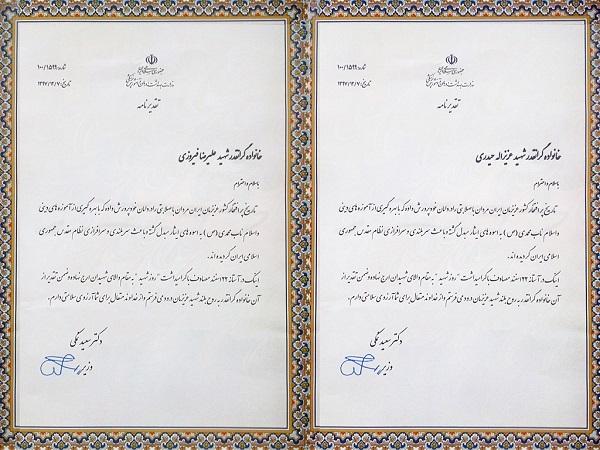 جمهوری اسلامی ایران
وزارت بهداشت، درمان و آموزش پزشکی
۱۰۰/۱۵۹۹
تاریخ: ۱۳۹۷/۱۲/۲۰
تقدیرنامه
خانواده گرانقدر شهید عزیزاله حیدری
با سلام و احترام
تاریخ پر افتخار کشور عزیزمان ایران مردان با صلابتی را در دامان خود پرورش داده که با بهره گیری از آموزه های دینی
و اسلام ناب محمدی (ص) به اسوه های ایثار مبدل گشته و باعث سربلندی و سرافرازی نظام مقدس جمهوری
اسلامی ایران گردیده اند.
اینک در آستانه ۲۲ اسفند مصادف با گرامیداشت "روز شهید" به مقام والای شهیدان ارج نهاده و ضمن تقدیر از
آن خانواده گرانقدر به روح بلند شهید عزیزمان درود می فرستم و از خداوند متعال برای شما آرزوی سلامتی دارم.
دکتر سعید نمکی
وزیر
جمهوری اسلامی ایران
وزارت بهداشت، درمان و آموزش پزشکی
۱۰۰/۱۵۹۹
تاریخ: ۱۳۹۷/۱۲/۲۰
تقدیرنامه
خانواده گرانقدر شهید علیرضا فیروزی
با سلام و احترام
تاریخ پر افتخار کشور عزیزمان ایران مردان با صلابتی را در دامان خود پرورش داده که با بهره گیری از آموزه های دینی
و اسلام ناب محمدی (ص) به اسوه های ایثار مبدل گشته و باعث سربلندی و سرافرازی نظام مقدس جمهوری
اسلامی ایران گردیده اند.
اینک در آستانه ۲۲ اسفند مصادف با گرامیداشت "روز شهید" به مقام والای شهیدان ارج نهاده و ضمن تقدیر از
آن خانواده گرانقدر به روح بلند شهید عزیزمان درود می فرستم و از خداوند متعال برای شما آرزوی سلامتی دارم.
دکتر سعید نمکی
وزیر